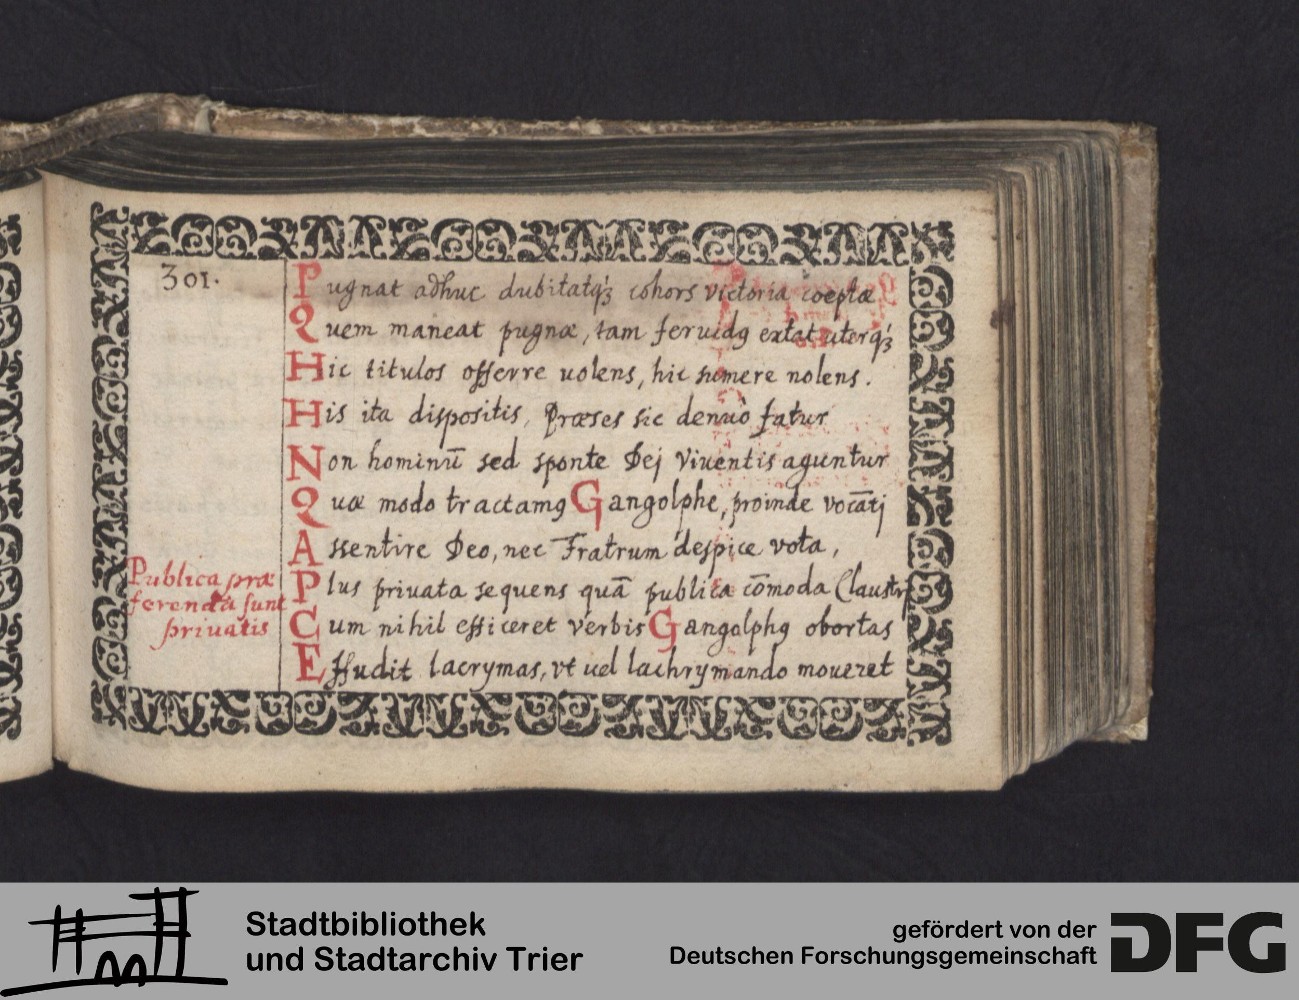 301.
Pugnat adhuc dubitatq́ꝫ cohors victoria coeptæ
Quem maneat pugnæ, tam feruidꝰ extat uterq́ꝫ
Hic titulos offerre uolens, hic sumere nolens.
His ita dispositis, Præses sic denuò fatur
Non hominū sed sponte Dej viuentis aguntur
Quæ modo tractamꝰ Gangolphe, proinde vocāti
Assentire Deo, nec Fratrum despice vota,
Publica præ
ferenda sunt
priuatis
Plus priuata sequens quā publica cōmoda Claustri
Cum nihil efficeret verbis Gangolphꝰ obortas
Effudit lacrymas, vt uel lachrymando moueret
Stadtbibliothek
und Stadtarchiv Trier
gefördert von der
Deutschen Forschungsgemeinschaft
DFG